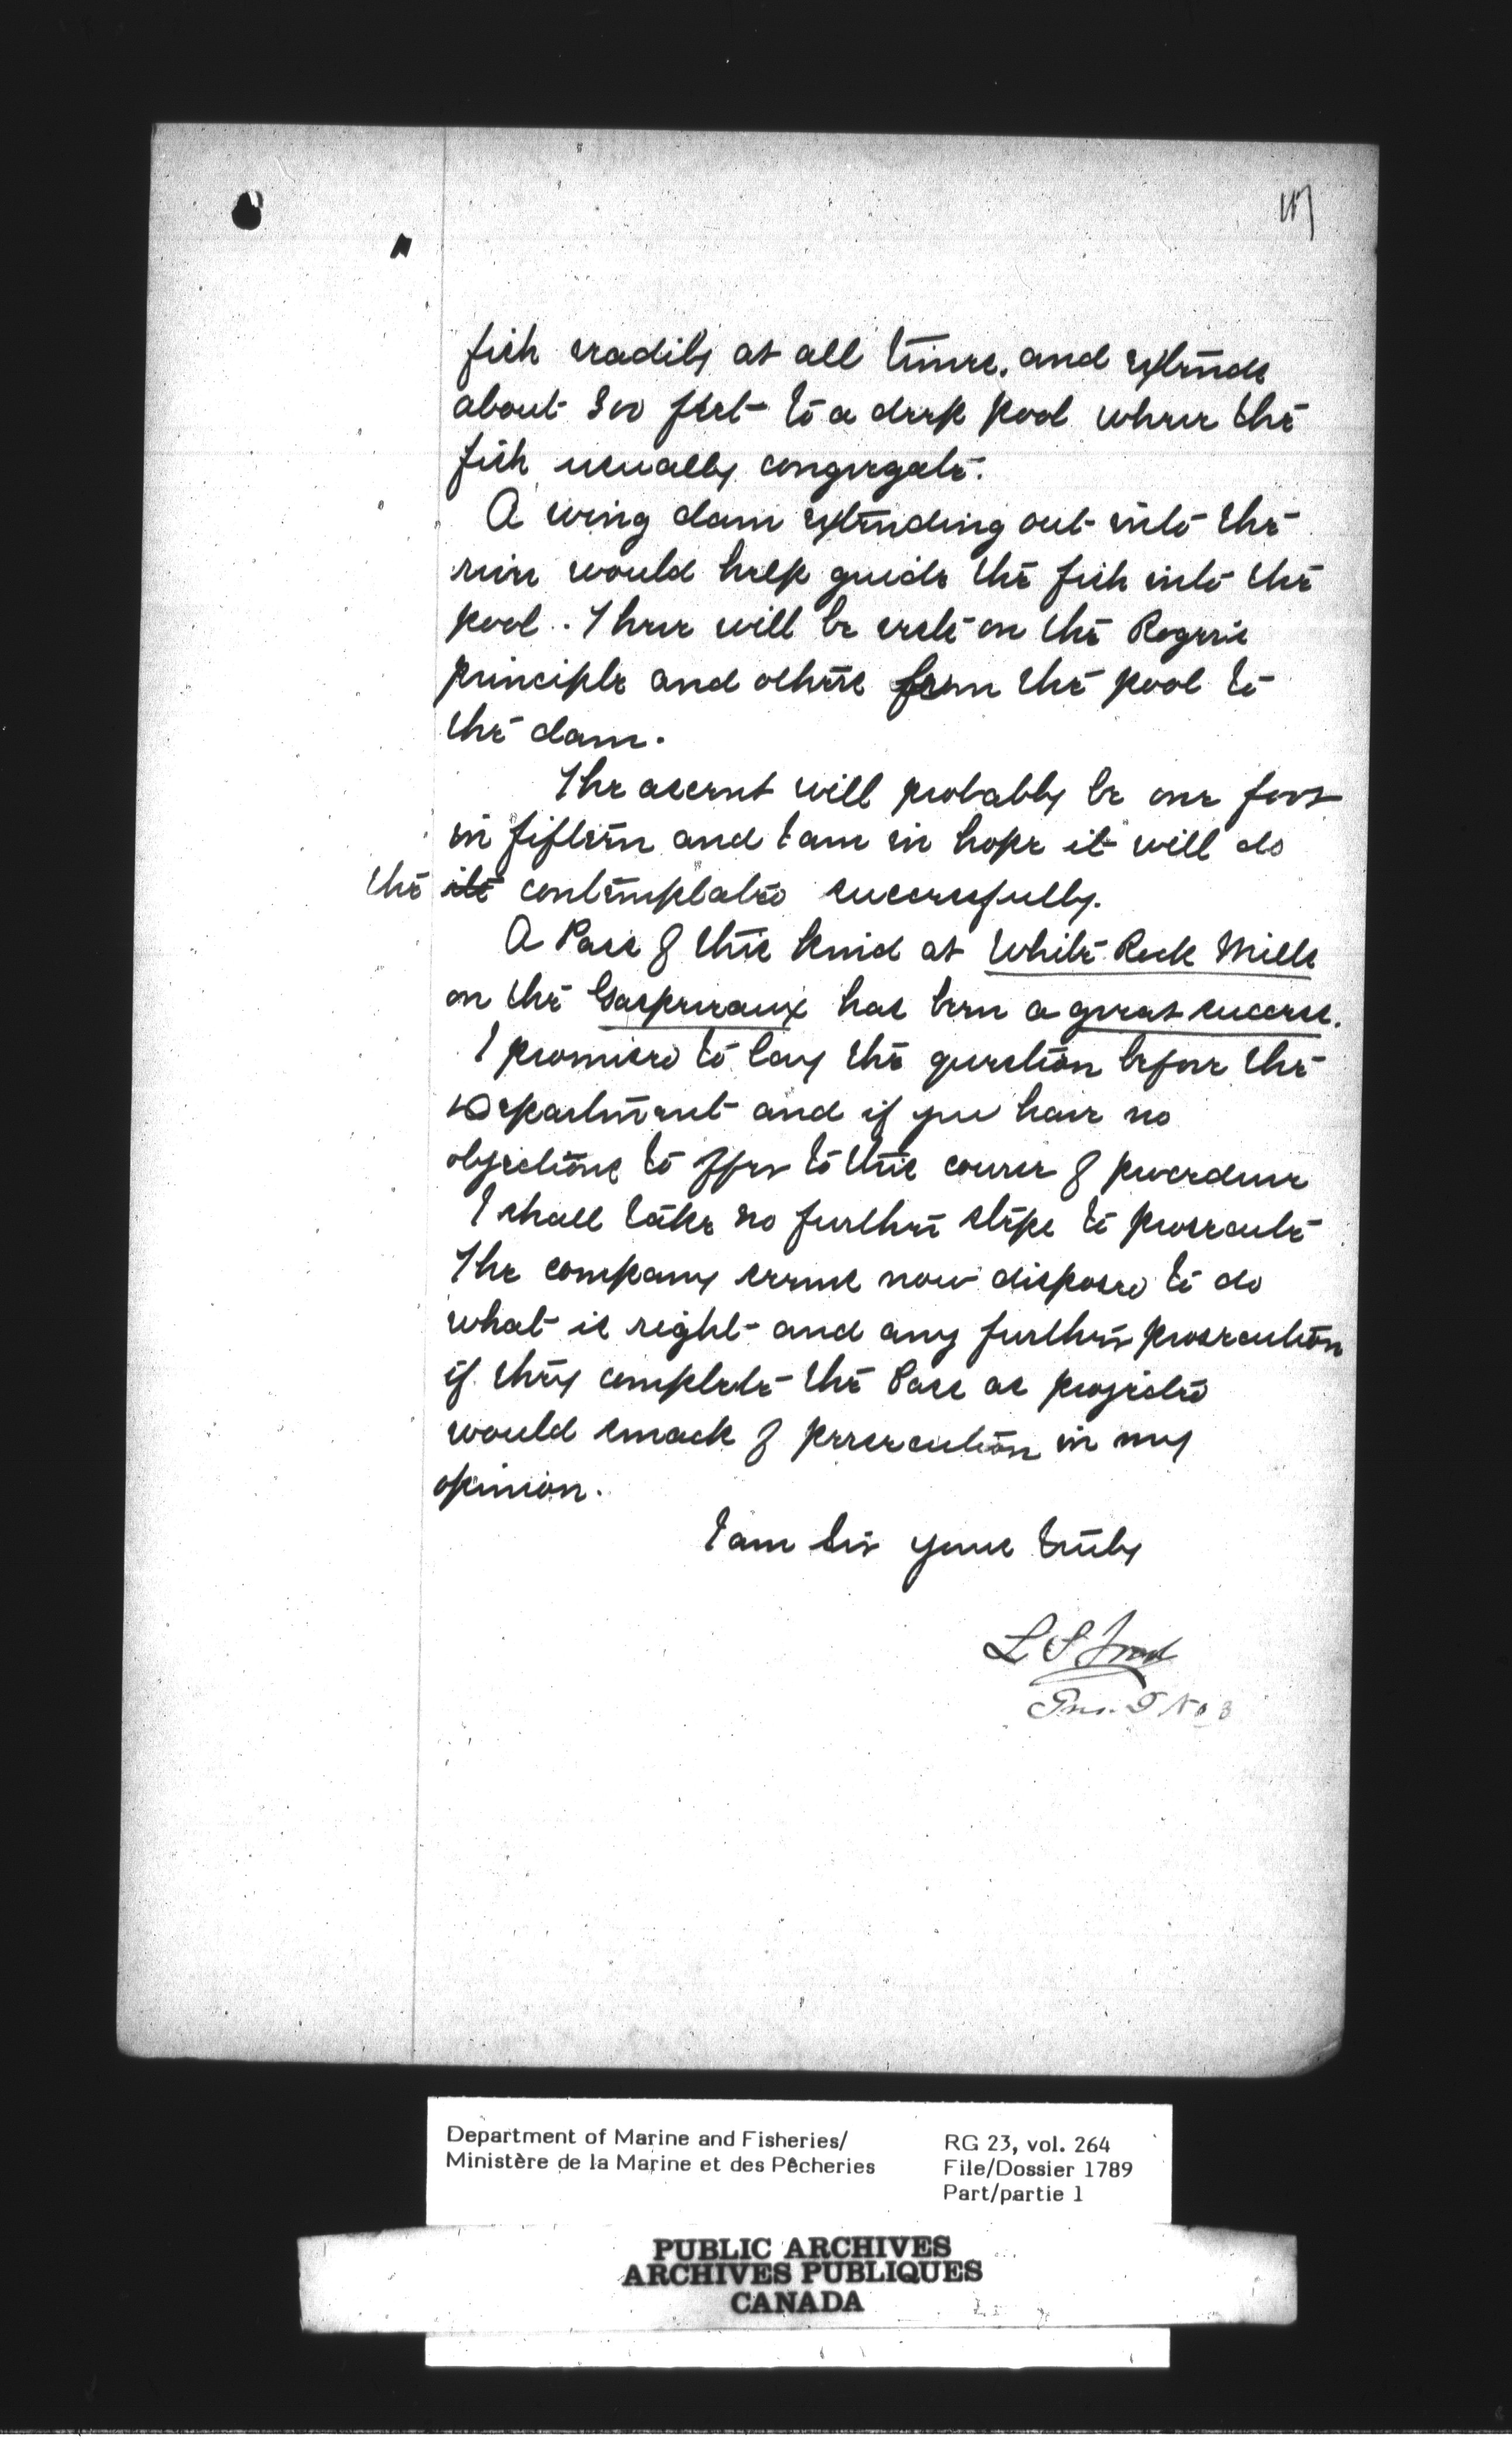 fish readily at all times, and extends
about 300 feet to a deep pool where the
fish usually congregate.
A wing dam extending out into the
river would help guide the fish into the
pool. There will be rests on the Rogers
principle and others from the pool to
the dam.
The ascent will probably be one foot
in fifteen and I am in hope it will do
the contemplated successfully.
A Pass of this kind at White Rock Mills
on the Gaspereaux has been a great success.
I promised to lay the question before the
Department and if you have no
objections to offer to this course of procedure
I shall take no further steps to prosecute
The company seems now disposed to do
what is right and any further prosecution
if they complete the Pass as projected
would smack of persecution in my
opinion.
I am Sir yours truly
L S Ford
No 3
Department of Marine and Fisheries/
Ministère de la Marine et des Pêcheries
RG 23, vol. 264
File/Dossier 1789
Part/partie 1
PUBLIC ARCHIVES
ARCHIVES PUBLIQUES
CANADA